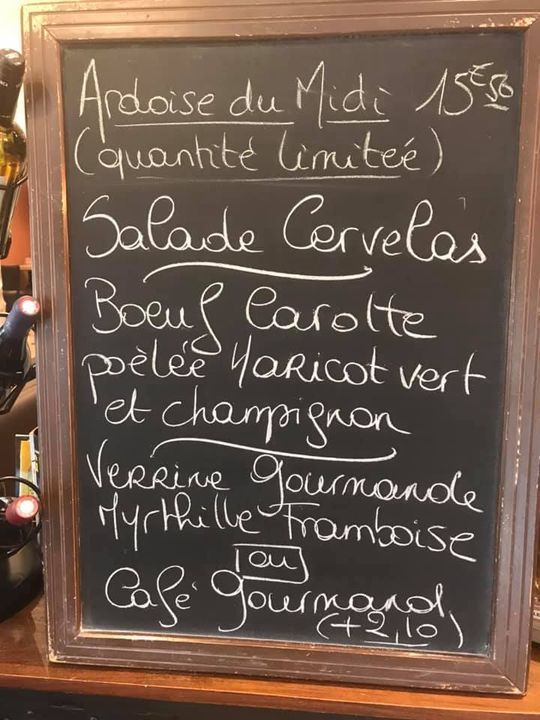 Ardoise du Midi 15€50
(quantité limitée)
Salade Cervelas
Boeuf Carotte
poèlée Haricot vert
et champignon
Verrine Gourmande
Myrthille Framboise
ou
Café Gourmand
(+2,10)